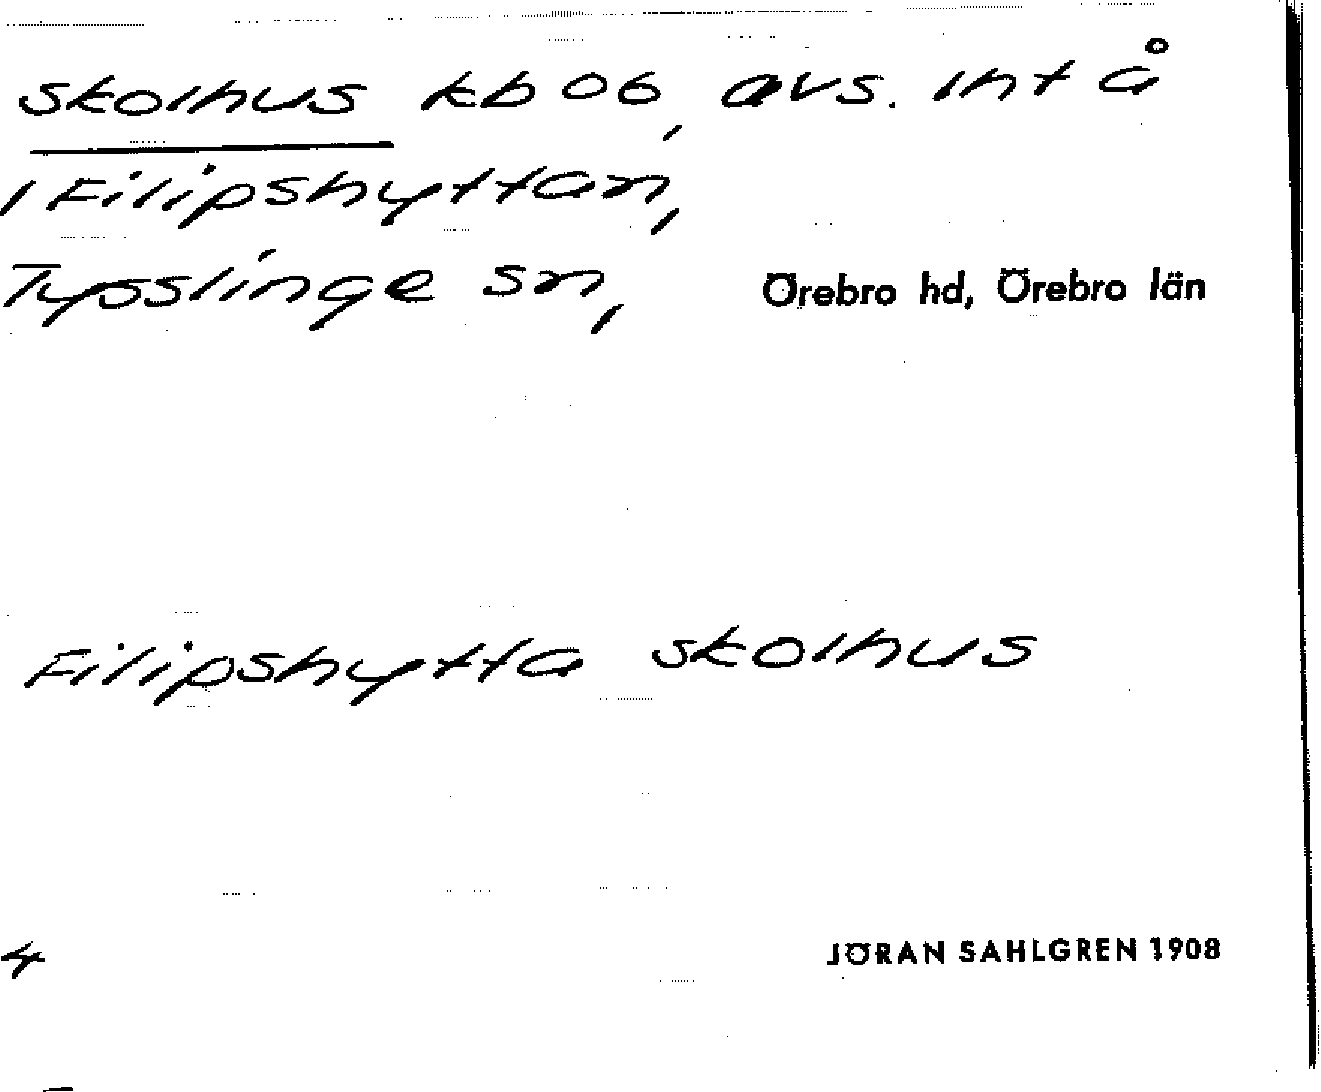 skolhus kb 06, avs. int å
i Filipshyttan,
Tysslinge sn, Örebro hd, Örebro län
Filipshytta skolhus
4 JÖRAN SAHLGREN 1908